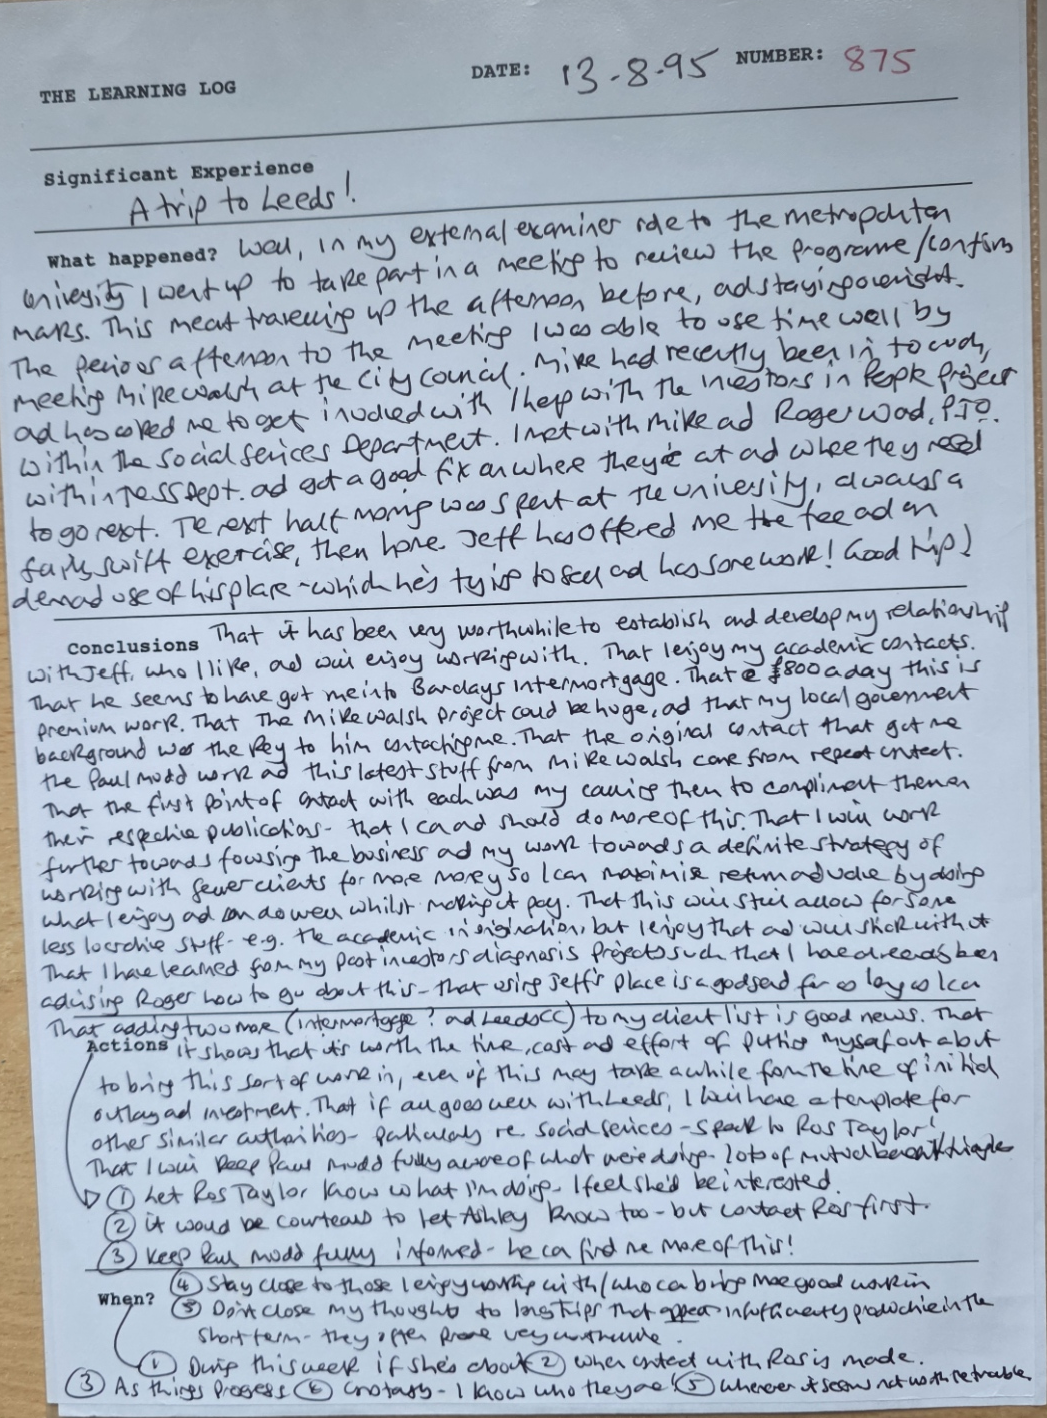 THE LEARNING LOG DATE: 13-8-95 NUMBER: 875
Significant Experience
A trip to Leeds!
What happened? Well, in my external examiner role to the metropolitan
university I went up to take part in a meeting to review the programme/confirm
marks. This meant travelling up the afternoon before, and staying overnight.
The previous afternoon to the meeting I was able to use time well by
meeting Mike Walsh at the City Council. Mike had recently been in touch,
and has asked me to get involved with / help with the Investors in People project
within the Social Services Department. I met with Mike and Roger Ward, P.T.O.
within ss Dept. and got a good fix on where they're at and where they need
to go next. The next half morning was spent at the university, always a
fairly swift exercise, then home. Jeff has offered me the free and on
demand use of his place - which he's trying to sell and has some work! Good trip!
Conclusions That it has been very worthwhile to establish and develop my relationship
with Jeff, who I like, and will enjoy working with. That I enjoy my academic contacts.
That he seems to have got me into Barclays Intermortgage. That @ £800 a day this is
premium work. That the Mike Walsh project could be huge, and that my local government
background was the key to him contacting me. That the original contact that got me
the Paul Mudd work and this latest stuff from Mike Walsh came from repeat contact.
That the first point of contact with each was my calling them to compliment them on
their respective publications - that I can and should do more of this. That I will work
further towards focusing the business and my work towards a definite strategy of
working with fewer clients for more money so I can maximise return and value by doing
what I enjoy and can do well whilst making it pay. That this will still allow for some
less lucrative stuff - e.g. the academic in origination, but I enjoy that and will stick with it
That I have learned from my past investors diagnosis projects such that I have already been
advising Roger how to go about this - that using Jeff's place is a godsend for as long as I can
That adding two more (intermortgage? and Leeds CC) to my client list is good news. That
Actions it shows that it's worth the time, cost and effort of putting myself out about
to bring this sort of work in, even if this may take a while from the time of initial
outlay and investment. That if all goes well with Leeds, I will have a template for
other similar authorities - particularly re. social services - speak to Ros Taylor!
That I will keep Paul Mudd fully aware of what we're doing - lots of mutual benefit
① Let Ros Taylor know what I'm doing - I feel she'd be interested.
② it would be courteous to let Ashley know too - but contact Ros first.
③ Keep Paul Mudd fully informed - he can find me more of this!
④ Stay close to those I enjoy working with/who can bring more good work in
When? ⑤ Don't close my thoughts to long trips that appear insufficiently productive in the
short term - they often prove very worthwhile.
① During this week if she's about ② when contact with Ros is made.
③ As things progress ⑥ Constantly - I know who they are! ⑤ whenever it seems not worth the trouble